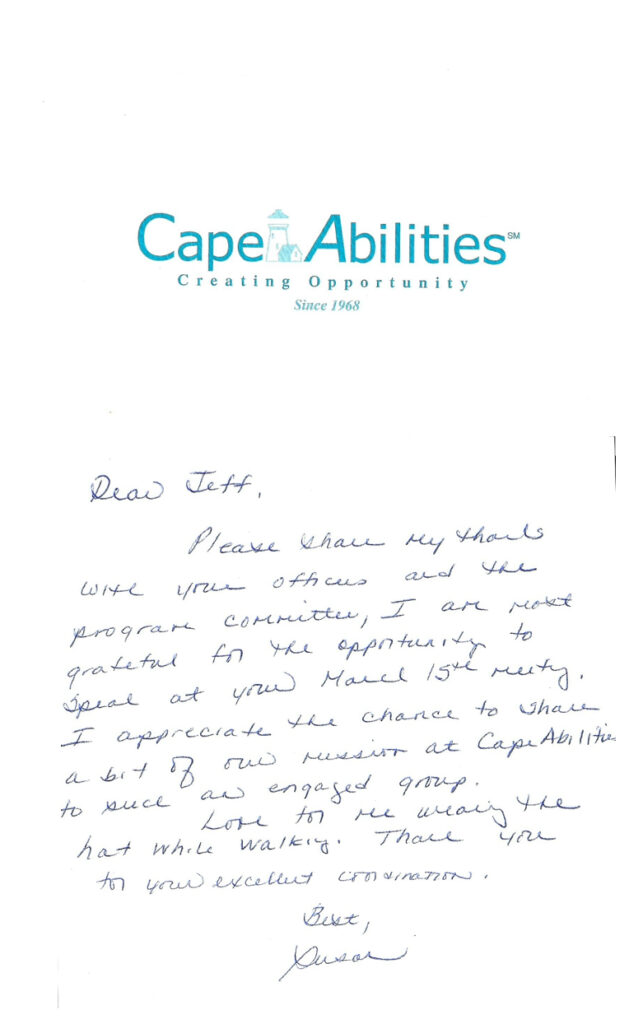 Cape Abilities℠
Creating Opportunity
Since 1968
Dear Jeff,
Please share my thanks
with your officers and the
program committee, I am most
grateful for the opportunity to
speak at your March 15th meeting.
I appreciate the chance to share
a bit of our mission at Cape Abilities
to such an engaged group.
Love for me wearing the
hat while walking. Thank you
for your excellent coordination.
Best,
Susan